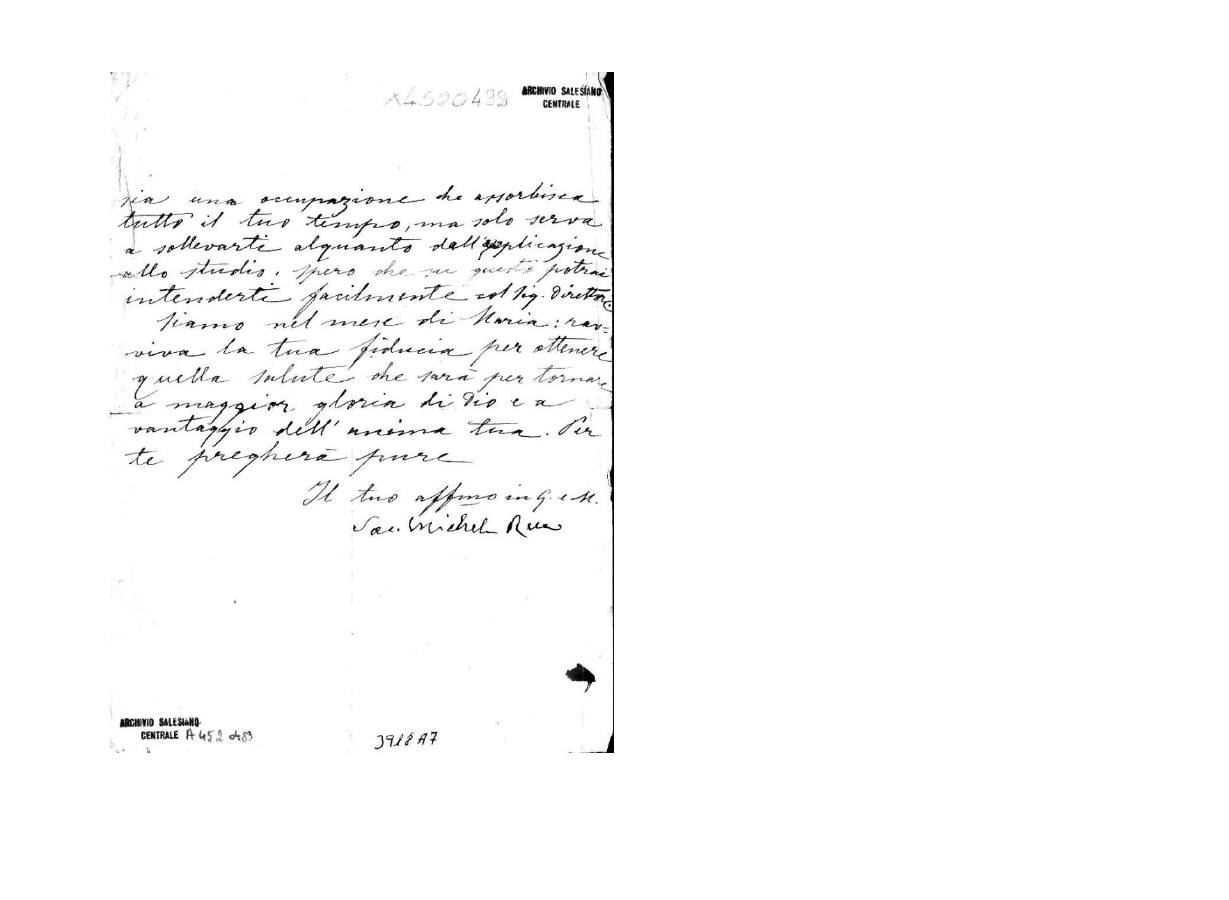 A4520499
ARCHIVIO SALESIANO
CENTRALE
sia una occupazione che assorbisca
tutto il tuo tempo, ma solo serva
a sollevarti alquanto dall'applicazione
allo studio. Spero che su questo potrai
intenderti facilmente col Sig. Direttore
Siamo nel mese di Maria: rav-
viva la tua fiducia per ottenere
quella salute che sarà per tornare
a maggior gloria di Dio e a
vantaggio dell'anima tua. Per
te pregherà pure
Il tuo affmo in G. e M.
Sac. Michele Rua
ARCHIVIO SALESIANO
CENTRALE A 452 0489
3918 A7